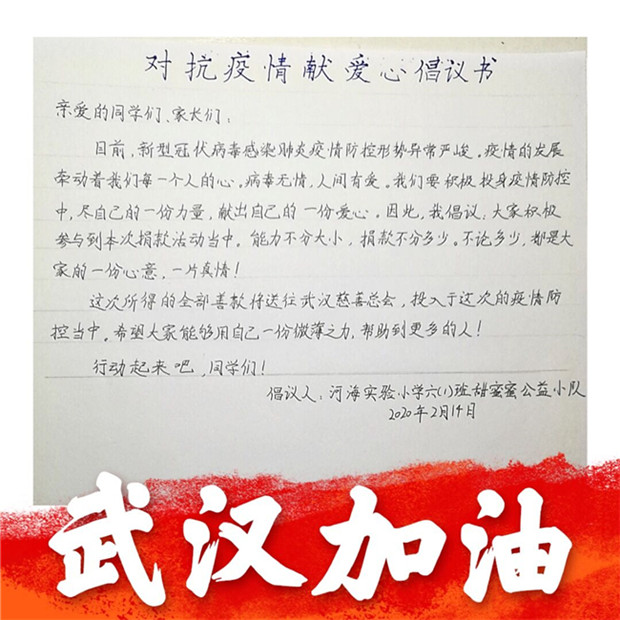 对抗疫情献爱心倡议书
亲爱的同学们、家长们:
目前,新型冠状病毒感染肺炎疫情防控形势异常严峻。疫情的发展
牵动着我们每一个人的心。病毒无情,人间有爱。我们要积极投身疫情防控
中,尽自己的一份力量,献出自己的一份爱心。因此,我倡议:大家积极
参与到本次捐款活动当中。能力不分大小,捐款不分多少。不论多少,都是大
家的一份心意,一片真情!
这次所得的全部善款将送往武汉慈善总会,投入于这次的疫情防
控当中。希望大家能够用自己一份微薄之力,帮助到更多的人!
行动起来吧,同学们!
倡议人:河海实验小学六(1)班甜蜜蜜公益小队
2020年2月14日
武汉加油